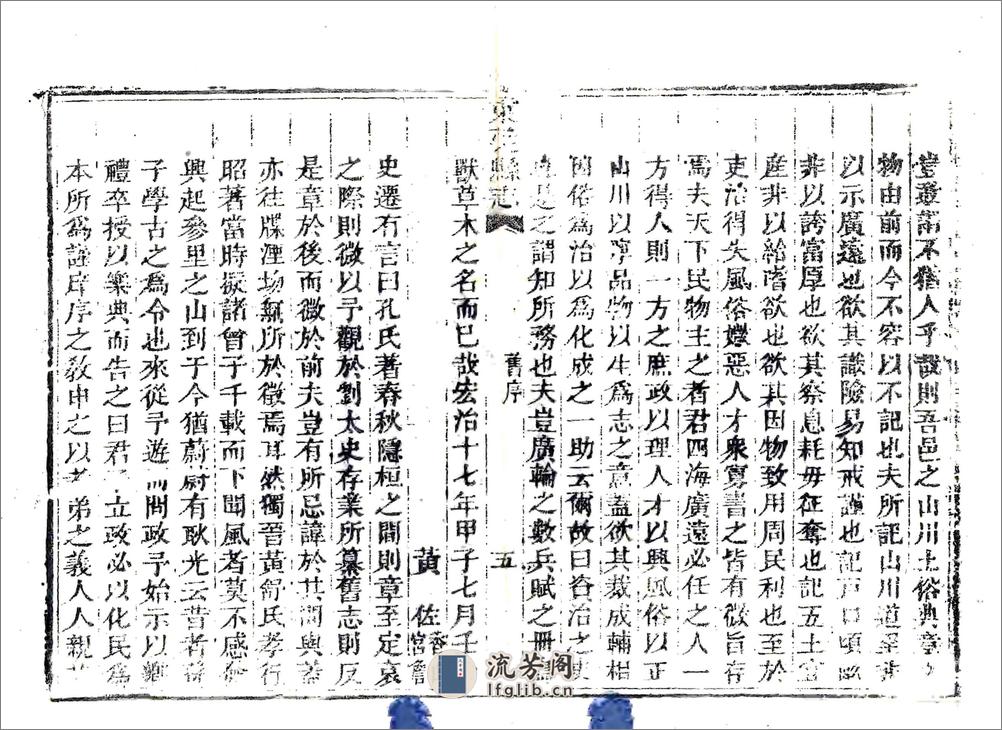 豈叢滿不猶人乎哉則吾邑之山川土俗典章
物由前而今不容以不記也夫所記山川道里非
以示廣遠也欲其識險易知戒謹也記戶口頃畝
非以誇富厚也欲其察息耗毋征奪也記五土宜
產非以給嗜欲也欲其因物致用周民利也至於
吏治得失風俗媺惡人才衆寡書之皆有微旨存
焉夫天下民物主之者君四海廣遠必任之人一
方得人則一方之庶政以理人才以興風俗以正
山川以寧品物以生爲志之意蓋欲其裁成輔相
因俗爲治以爲化成之一助云爾故曰咨治之
之謂知所務也夫豈廣輪之數兵賦之冊
東莞縣志
舊序
五
獸草木之名而已哉宏治十七年甲子七月壬
黃佐
香山
史遷有言曰孔氏著春秋隱桓之間則章至定哀
之際則微以予觀於劉太史存業所纂舊志則反
是章於後而微於前夫豈有所忌諱於其間與蓋
亦往牒湮場無所於徵焉耳然獨晉黃舒氏孝行
昭著當時擬諸曾子千載而下聞風者莫不感發
興起參里之山到于今猶蔚蔚有耿光云昔者孫
子學古之爲令也來從予遊而問政予始示以鄉
禮卒授以樂典而告之曰君 立政必以化民爲
本所爲謹庠序之教申之以孝弟之義人人親
流芳阁
lfglib.cn